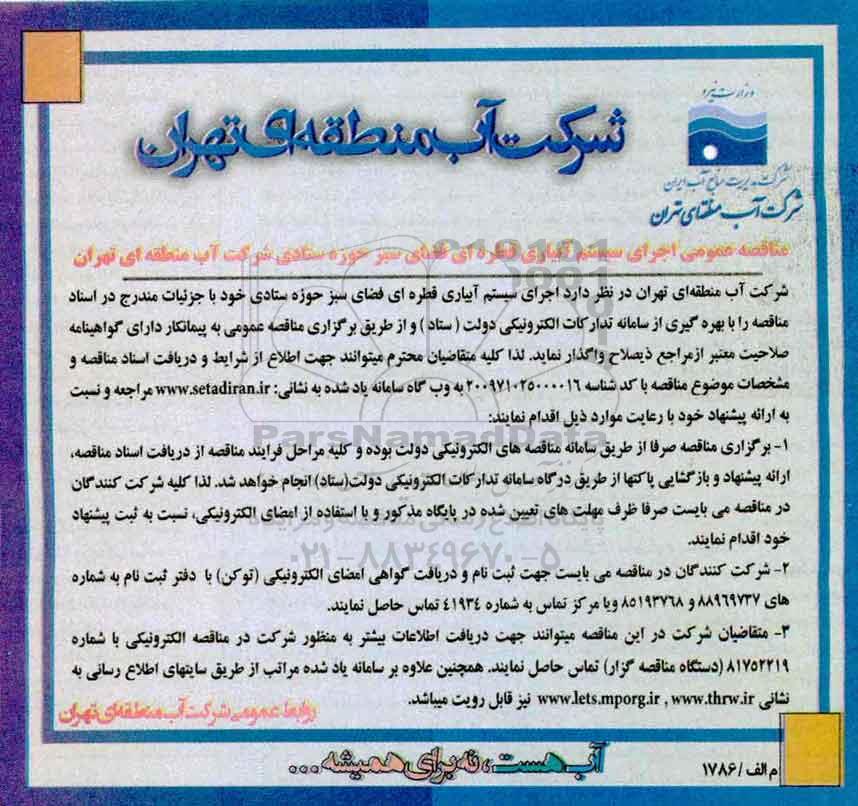 وزارت نیرو
شرکت مدیریت منابع آب ایران
شرکت آب منطقه‌ای تهران
شرکت آب منطقه‌ای تهران
مناقصه عمومی اجرای سیستم آبیاری قطره ای فضای سبز حوزه ستادی شرکت آب منطقه ای تهران
شرکت آب منطقه‌ای تهران در نظر دارد اجرای سیستم آبیاری قطره ای فضای سبز حوزه ستادی خود با جزئیات مندرج در اسناد
مناقصه را با بهره گیری از سامانه تدارکات الکترونیکی دولت ( ستاد ) و از طریق برگزاری مناقصه عمومی به پیمانکار دارای گواهینامه
صلاحیت معتبر ازمراجع ذیصلاح واگذار نماید. لذا کلیه متقاضیان محترم میتوانند جهت اطلاع از شرایط و دریافت اسناد مناقصه و
مشخصات موضوع مناقصه با کد شناسه ۲۰۰۹۷۱۰۲۵۰۰۰۰۱۶ به وب گاه سامانه یاد شده به نشانی: www.setadiran.ir مراجعه و نسبت
به ارائه پیشنهاد خود با رعایت موارد ذیل اقدام نمایند:
ParsNamadData
۱- برگزاری مناقصه صرفا از طریق سامانه مناقصه های الکترونیکی دولت بوده و کلیه مراحل فرایند مناقصه از دریافت اسناد مناقصه،
ارائه پیشنهاد و بازگشایی پاکتها از طریق درگاه سامانه تدارکات الکترونیکی دولت(ستاد) انجام خواهد شد. لذا کلیه شرکت کنندگان
در مناقصه می بایست صرفا ظرف مهلت های تعیین شده در پایگاه مذکور و با استفاده از امضای الکترونیکی، نسبت به ثبت پیشنهاد
خود اقدام نمایند.
۰۲۱-۸۸۳۴۹۶۷۰-۵
۲- شرکت کنندگان در مناقصه می بایست جهت ثبت نام و دریافت گواهی امضای الکترونیکی (توکن) با دفتر ثبت نام به شماره
های ۸۸۹۶۹۷۳۷ و ۸۵۱۹۳۷۶۸ ویا مرکز تماس به شماره ۴۱۹۳۴ تماس حاصل نمایند.
۳- متقاضیان شرکت در این مناقصه میتوانند جهت دریافت اطلاعات بیشتر به منظور شرکت در مناقصه الکترونیکی با شماره
۸۱۷۵۲۲۱۹ (دستگاه مناقصه گزار) تماس حاصل نمایند. همچنین علاوه بر سامانه یاد شده مراتب از طریق سایتهای اطلاع رسانی به
نشانی www.lets.mporg.ir , www.thrw.ir نیز قابل رویت میباشد.
روابط عمومی شرکت آب منطقه‌ای تهران
آب هست، نه برای همیشه ...
م الف / ۱۷۸۶